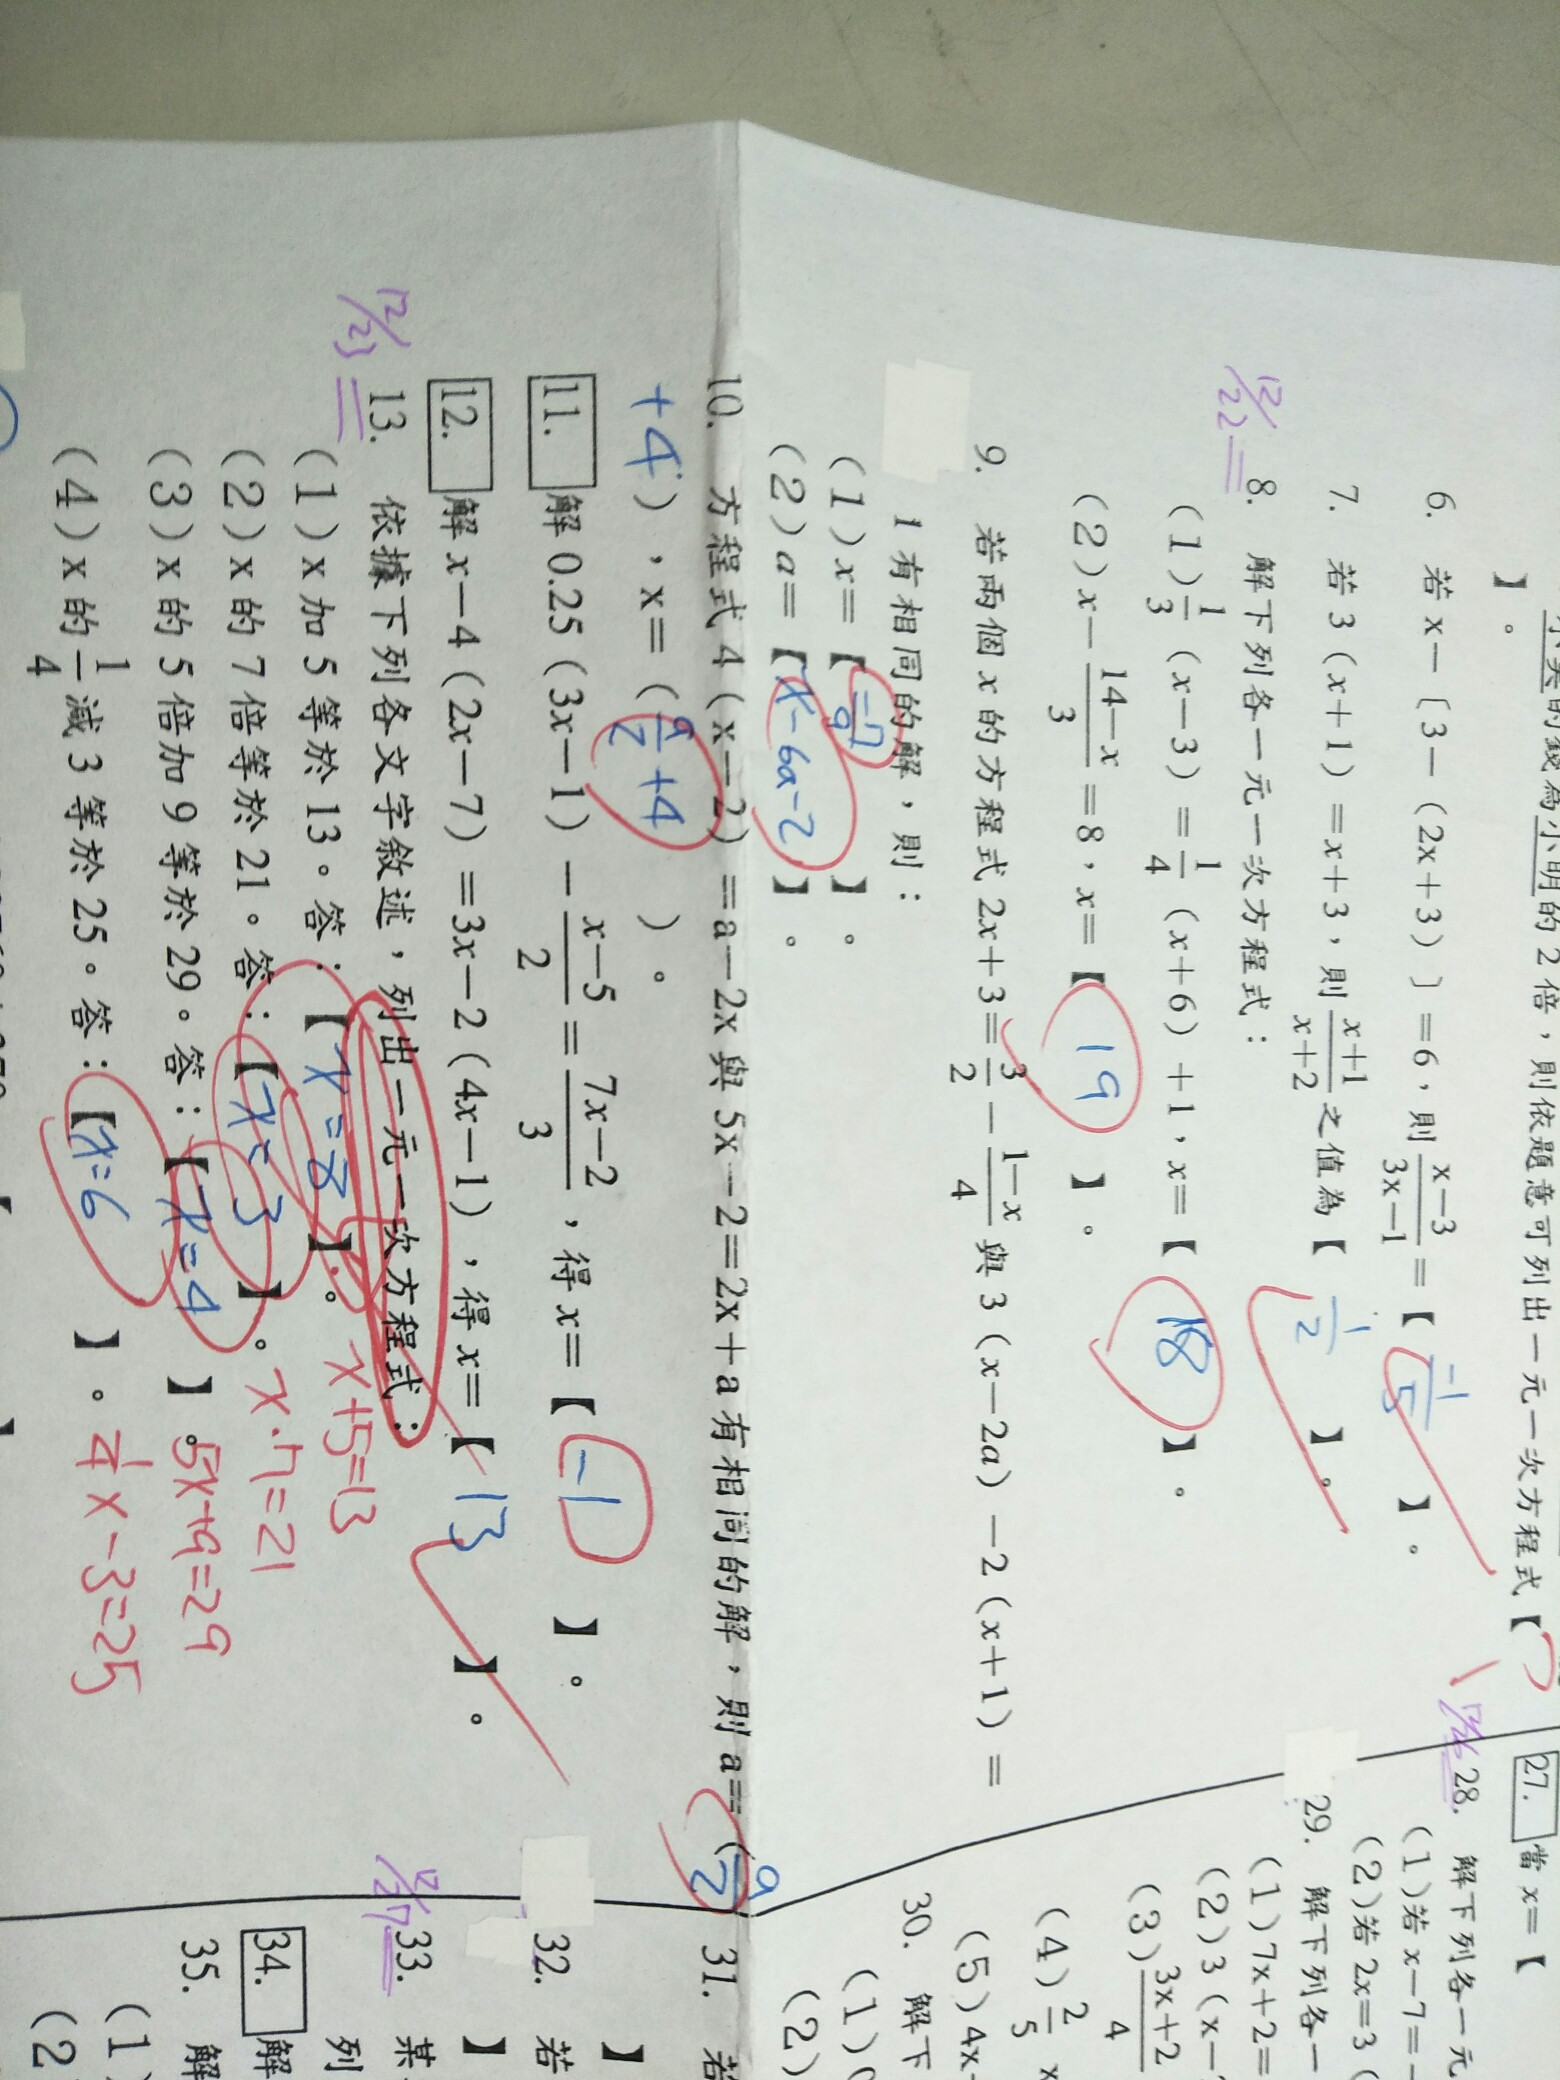 小美的錢為小明的2倍，則依題意可列出一元一次方程式【
】。
6. 若x－〔3－（2x＋3）〕＝6，則 x－3/3x－1 ＝【 －1/5 】。
7. 若3（x＋1）＝x＋3，則 x＋1/x＋2 之值為【 1/2 】。
12/22 8. 解下列各一元一次方程式：
（1）1/3（x－3）＝1/4（x＋6）＋1，x＝【 18 】。
（2）x－14－x/3＝8，x＝【 19 】。
9. 若兩個x的方程式2x＋3＝3/2－1－x/4與3（x－2a）－2（x＋1）＝
1有相同的解，則：
（1）x＝【 －7/9 】。
（2）a＝【 x－6a－2 】。
10. 方程式4（x－2）＝a－2x與5x－2＝2x＋a有相同的解，則a＝（9/2
＋4），x＝（ 9/2＋4 ）。
11. 解0.25（3x－1）－x－5/2＝7x－2/3，得x＝【 －1 】。
12. 解x－4（2x－7）＝3x－2（4x－1），得x＝【 13 】。
12/23 13. 依據下列各文字敘述，列出一元一次方程式：
（1）x加5等於13。答：【 x＝8 】。 x＋5＝13
（2）x的7倍等於21。答：【 x＝3 】。 x·7＝21
（3）x的5倍加9等於29。答：【 x＝4 】。 5x＋9＝29
（4）x的1/4減3等於25。答：【 x＝6 】。 1/4x－3＝25
27. 當x＝【
28. 解下列各一元
（1）若x－7＝－
（2）若2x＝3（
29. 解下列各一
（1）7x＋2＝
（2）3（x－
（3）3x＋2/4
（4）2/5x
（5）4x－
30. 解下
（1）
（2）
31. 若
】
32. 若
】
33. 某
列
34. 解
35. 解
（1）
（2